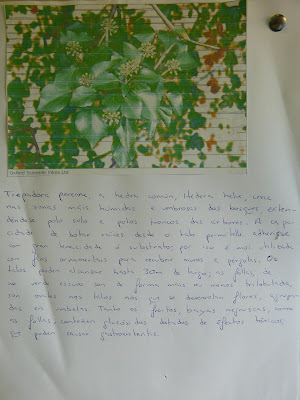 Oxford Scientific Films Ltd
Trepadora perenne, a hedra común, Hedera helix, crece
nas zonas máis húmidas e umbrosas dos bosques, esten-
déndose polo solo e polos troncos das árbores. A ca pa
cidade de botar raíces desde o talo permítelle adherirse
con gran tenacidade ó substrato; por iso é moi utilizada
con fins ornamentais para recubrir muros e pérgolas. Os
talos poden alcanzar hasta 30m de longo; as follas, de
cor verde escuro son de forma máis ou menos trilobulada,
son ovales nos talos nos que se desenvolven flores, agrupa
das en umbelas. Tanto os froitos, bayas negruzcas, como
as follas, conteñen glucósidos dotados de efectos tóxicos,
poden causar gastroenterite.